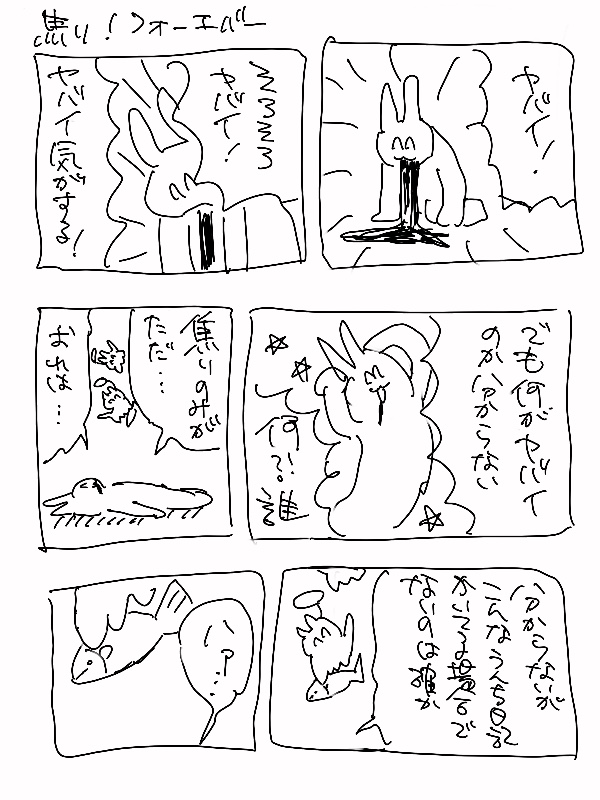 焦り！フォーエバー
ヤバイ！
そろそろ
ヤバイ！
ヤバイ気がする！
でも何がヤバイ
のか分からない
何?!誰
焦りのみが
ただ…
おれは…
分からないが
こんなうんち日記
かいてる場合で
ないのは確か
ハァ…